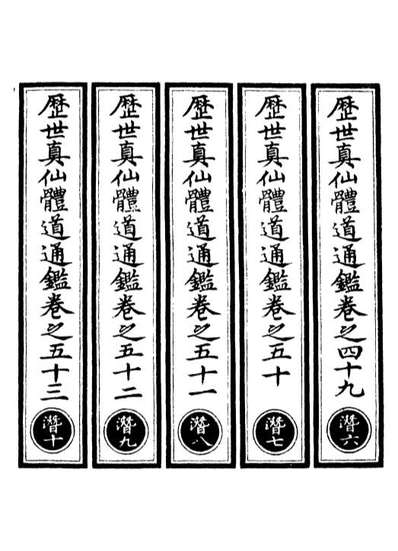 歷世真仙體道通鑑卷之四十九
潛六
歷世真仙體道通鑑卷之五十
潛七
歷世真仙體道通鑑卷之五十一
潛八
歷世真仙體道通鑑卷之五十二
潛九
歷世真仙體道通鑑卷之五十三
潛十